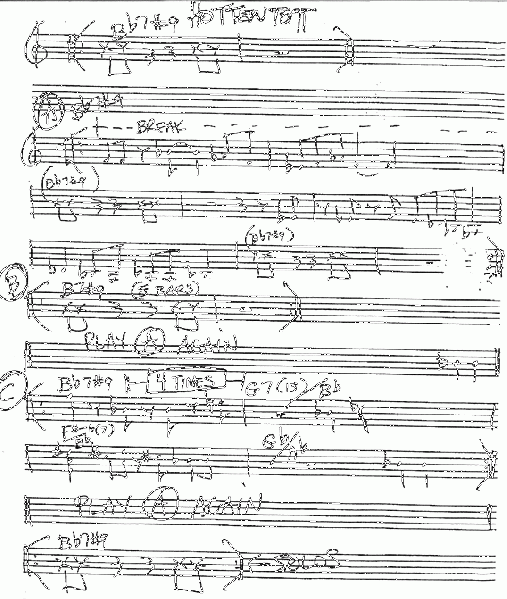 Bb7#9 HOTTENTOTT
A
BREAK
(Bb7#9)
(Bb7#9)
B
B7#9 (8 BARS)
PLAY A AGAIN
C
Bb7#9 4 TIMES G7(13) / Bb
Gb/Ab
PLAY A AGAIN
Bb7#9 SOLOS